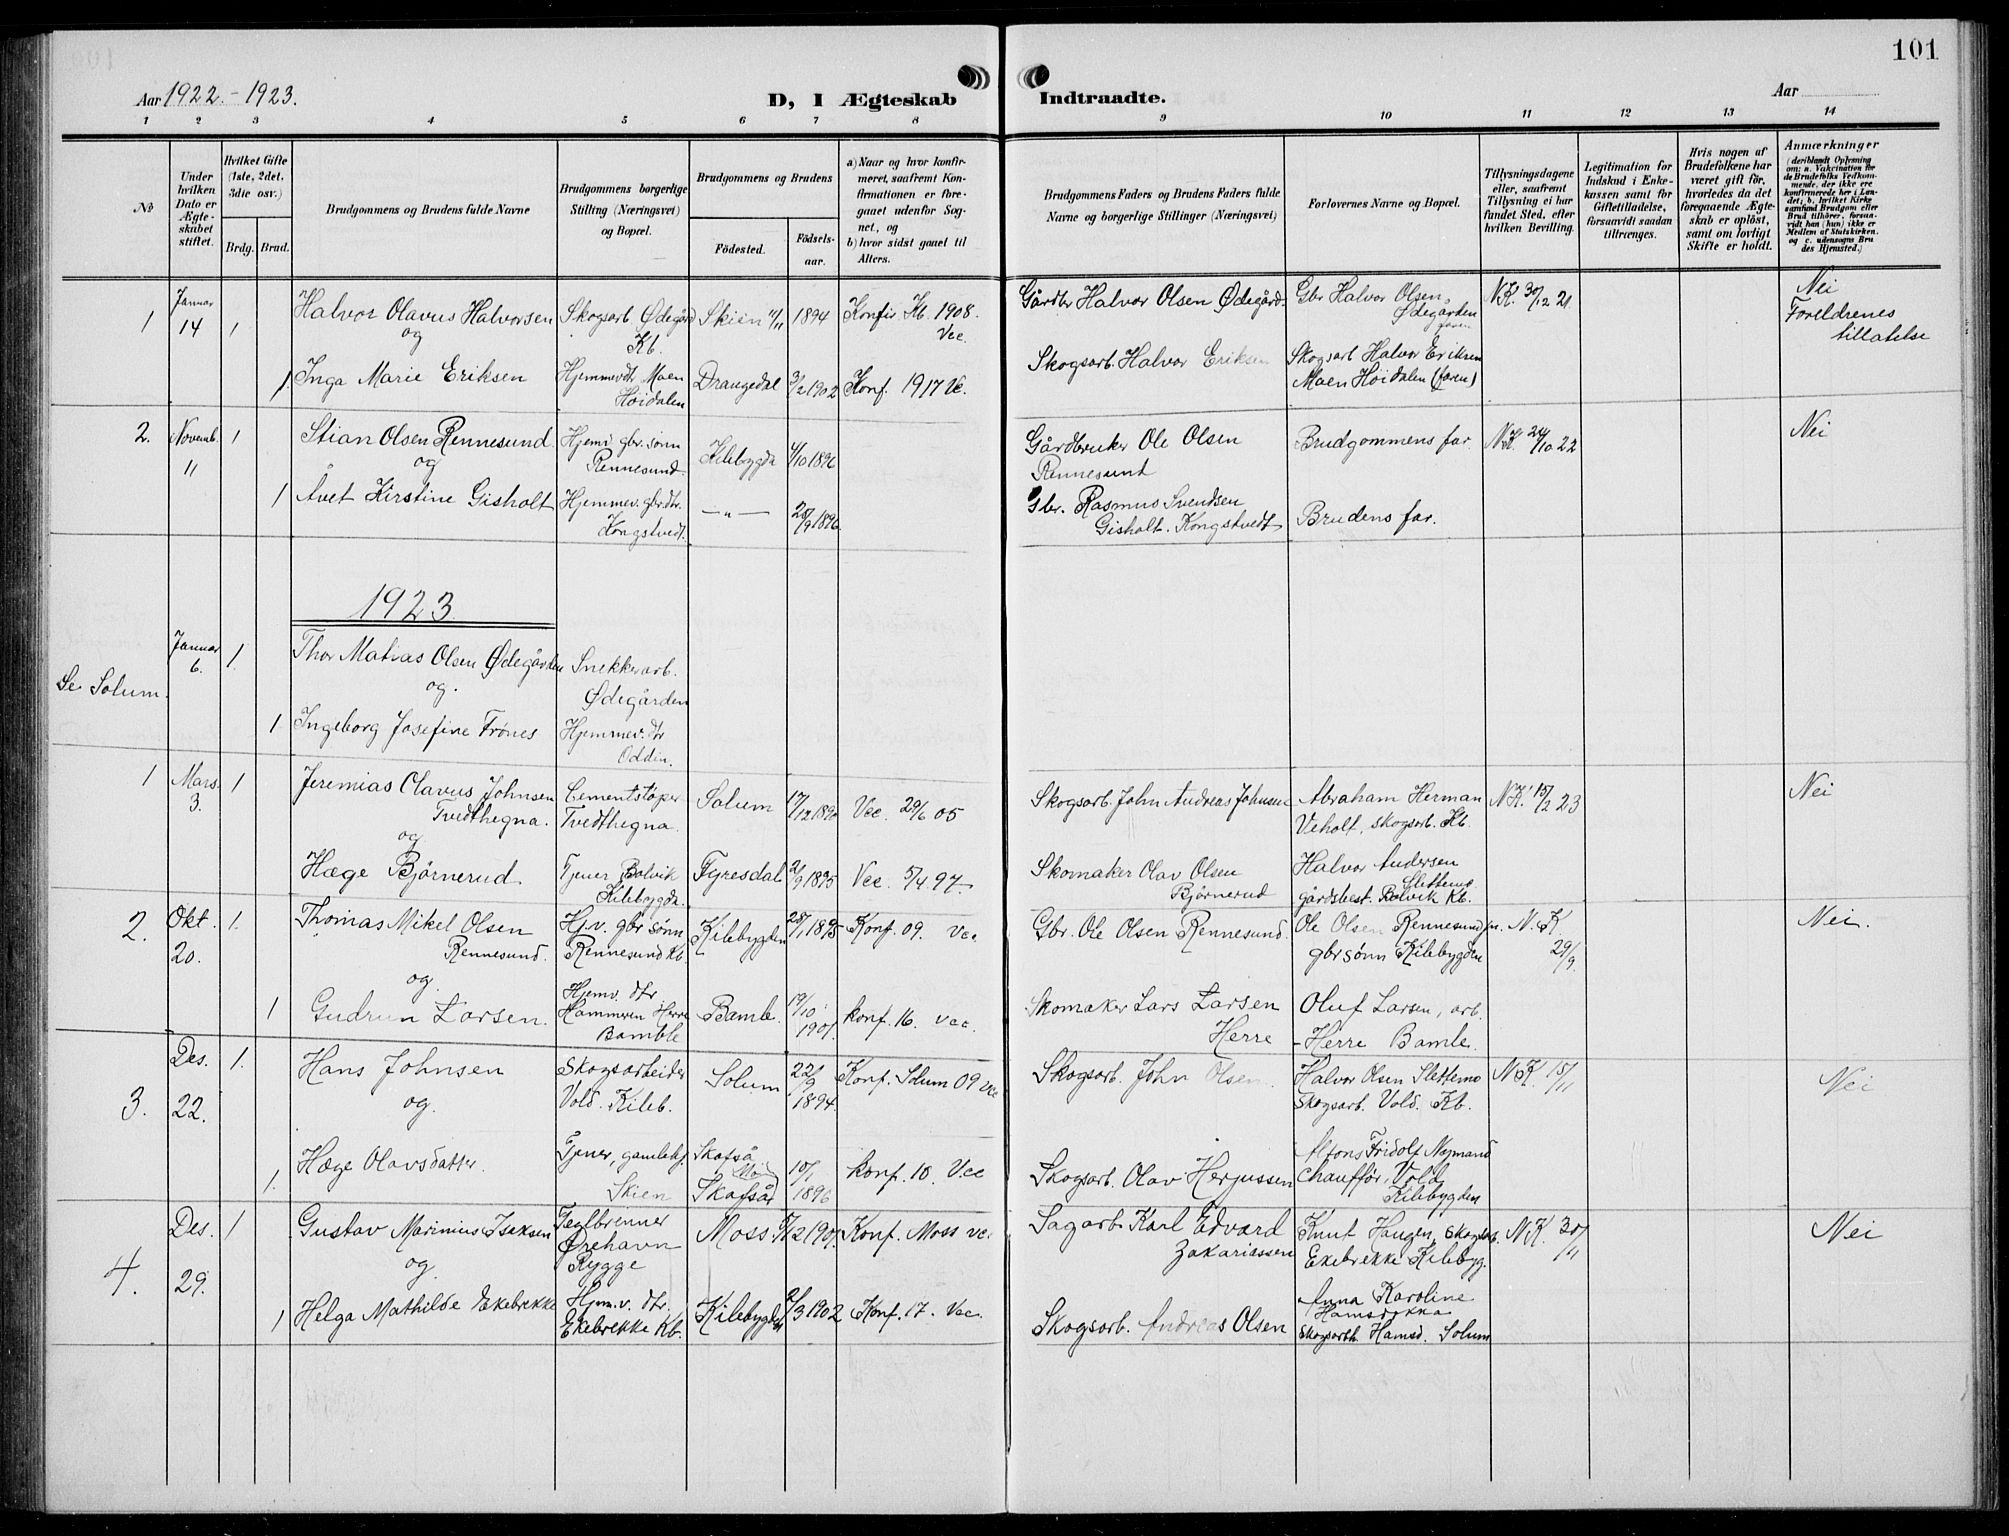 101
Aar 1922.-1923.
D, I Ægteskab Indtraadte.
Aar
1 2 3 4 5 6 7 8 9 10 11 12 13 14
No
Under hvilken Dato er Ægteskabet stiftet.
Hvilket Gifte (1ste, 2det, 3die osv.)
Brdg. Brud.
Brudgommens og Brudens fulde Navne
Brudgommens borgerlige Stilling (Næringsvei) og Bopæl.
Brudgommens og Brudens
Fødested.
Fødselsaar.
a) Naar og hvor konfirmeret, saafremt Konfirmationen er foregaaet udenfor Sognet, og
b) hvor sidst gaaet til Alters.
Brudgommens Faders og Brudens Faders fulde Navne og borgerlige Stillinger (Næringsvei)
Forlovernes Navne og Bopæl.
Tillysningsdagene eller, saafremt Tillysning ei har fundet Sted, efter hvilken Bevilling.
Legitimation for Indskud i Enkekassen samt for Giftetilladelse, forsaavidt saadan tiltrænges.
Hvis nogen af Brudefolkene har været gift før, hvorledes da det foregaaende Ægteskab er opløst, samt om lovligt Skifte er holdt.
Anmærkninger
(deriblandt Oplysning om: a. Vakcination for de Brudefolks Vedkommende, der ikke ere konfirmerede her i Landet; b. hvilket Kirkesamfund Brudgom eller Brud tilhører, forsaavidt han (hun) ikke er Medlem af Statskirken, og c. udensogns Brudes Hjemsted.)
1 Januar 14 1 Halvor Olavus Halvorsen Skogsarb. Ødegård Kb. Skien 11/11 1894 Konfir Kb. 1908. Vec. Gårdbr Halvor Olsen Ødegård. Gbr Halvor Olsen, Ødegården faren N.K. 30/12 21 Nei Foreldrenes tillatelse
og
1 Inga Marie Eriksen Hjemmevdtr Moen Høidalen Drangedal 3/2 1902 Konf. 1917 Vc. Skogsarb. Halvor Eriksen Skogsarb Halvor Eriksen Moen Høidalen (faren)
2. Novemb. 11 1 Stian Olsen Rennesund Hjemv gbr. sønn Rennesund. Kilebygda 4/10 1896 Gårdbruker Ole Olsen Rennesund Brudgommens far N.K. 24/10 22 Nei
og
1 Åvet Kirstine Gisholt Hjemmev. gbr.dtr. Kongstvedt. —"— 28/9 1896. Gbr. Rasmus Svendsen Gisholt. Kongstvedt Brudens far.
1923.
Se Solum. Januar 6. 1. Thor Matias Olsen Ødegården Snekkerarb. Ødegården
og.
1 Ingeborg Josefine Frönes Hjemmev. dtr Odden.
1 Mars 3. 1 Jeremias Olavus Johnsen Tvedthegna. Cementstöper Tvedthegna. Solum 17/12 1890 Vec. 29/6 05 Skogsarb. John Andreas Johnsen Abraham Herman Veholt, skogsarb. Kb. N.K. 15/2 23 Nei
og
Hæge Bjørnerud Tjener, Bolvik Kilebygda. Fyresdal 2/9 1895 Vec. 5/4 97. Skomaker Olav Olsen Bjørnerud Halvor Andersen Slettemo gårdsbest. Bolvik Kb.
2. Okt. 20. 1. Thomas Mikel Olsen Rennesund. Hj.v. gbr sønn Rennesund Kb. Kilebygden 28/1 1895 Konf. 09. Vec Gbr. Ole Olsen Rennesund. Ole Olsen Rennesund jn. gbr sønn Kilebygden N.K 29/9. Nei.
og.
1 Gudrun Larsen. Hjemv. dtr Hammeren Herre Bamble Bamle. 19/10 1901 konf. 16. vec. Skomaker Lars Larsen Herre Oluf Larsen, arb. - Herre Bamle.
3. Des. 22. 1. Hans Johnsen Skogsarbeider Vold. Kileb. Solum 22/9 1894 Konf. Solum 09 Vec Skogsarb. John Olsen. Halvor Olsen Slettemo Skogsarb. Vold. Kb. N.K. 15/11 Nei
og.
1. Hæge Olavsdatter. Tjener, gamlehj. Skien Skafså Mo Skafså 10/1 1896 konf. 10. Vec Skogsarb. Olav Herjussen Alfons Fridolf Nymand Chauffør, Vold Kilebygden
4. Des. 29. 1 Gustav Marinius Isaksen Teglbrenner Ørehavn Rygge Moss 5/12 1901 Konf. Moss vec Sagarb Karl Edvard Zakariassen Knut Haugen, Skogsarb. Ekebrekke Kilebyg. N.K. 30/11 Nei
og.
1 Helga Mathilde Ekebrekke Hjm.v. dtr. Ekebrekke Kb. Kilebygden 2/3 1902 Konf. 17. Vec. Skogsarb. Andreas Olsen Anna Karoline Hamsdokka Skogsarb. Hamsd. Solum